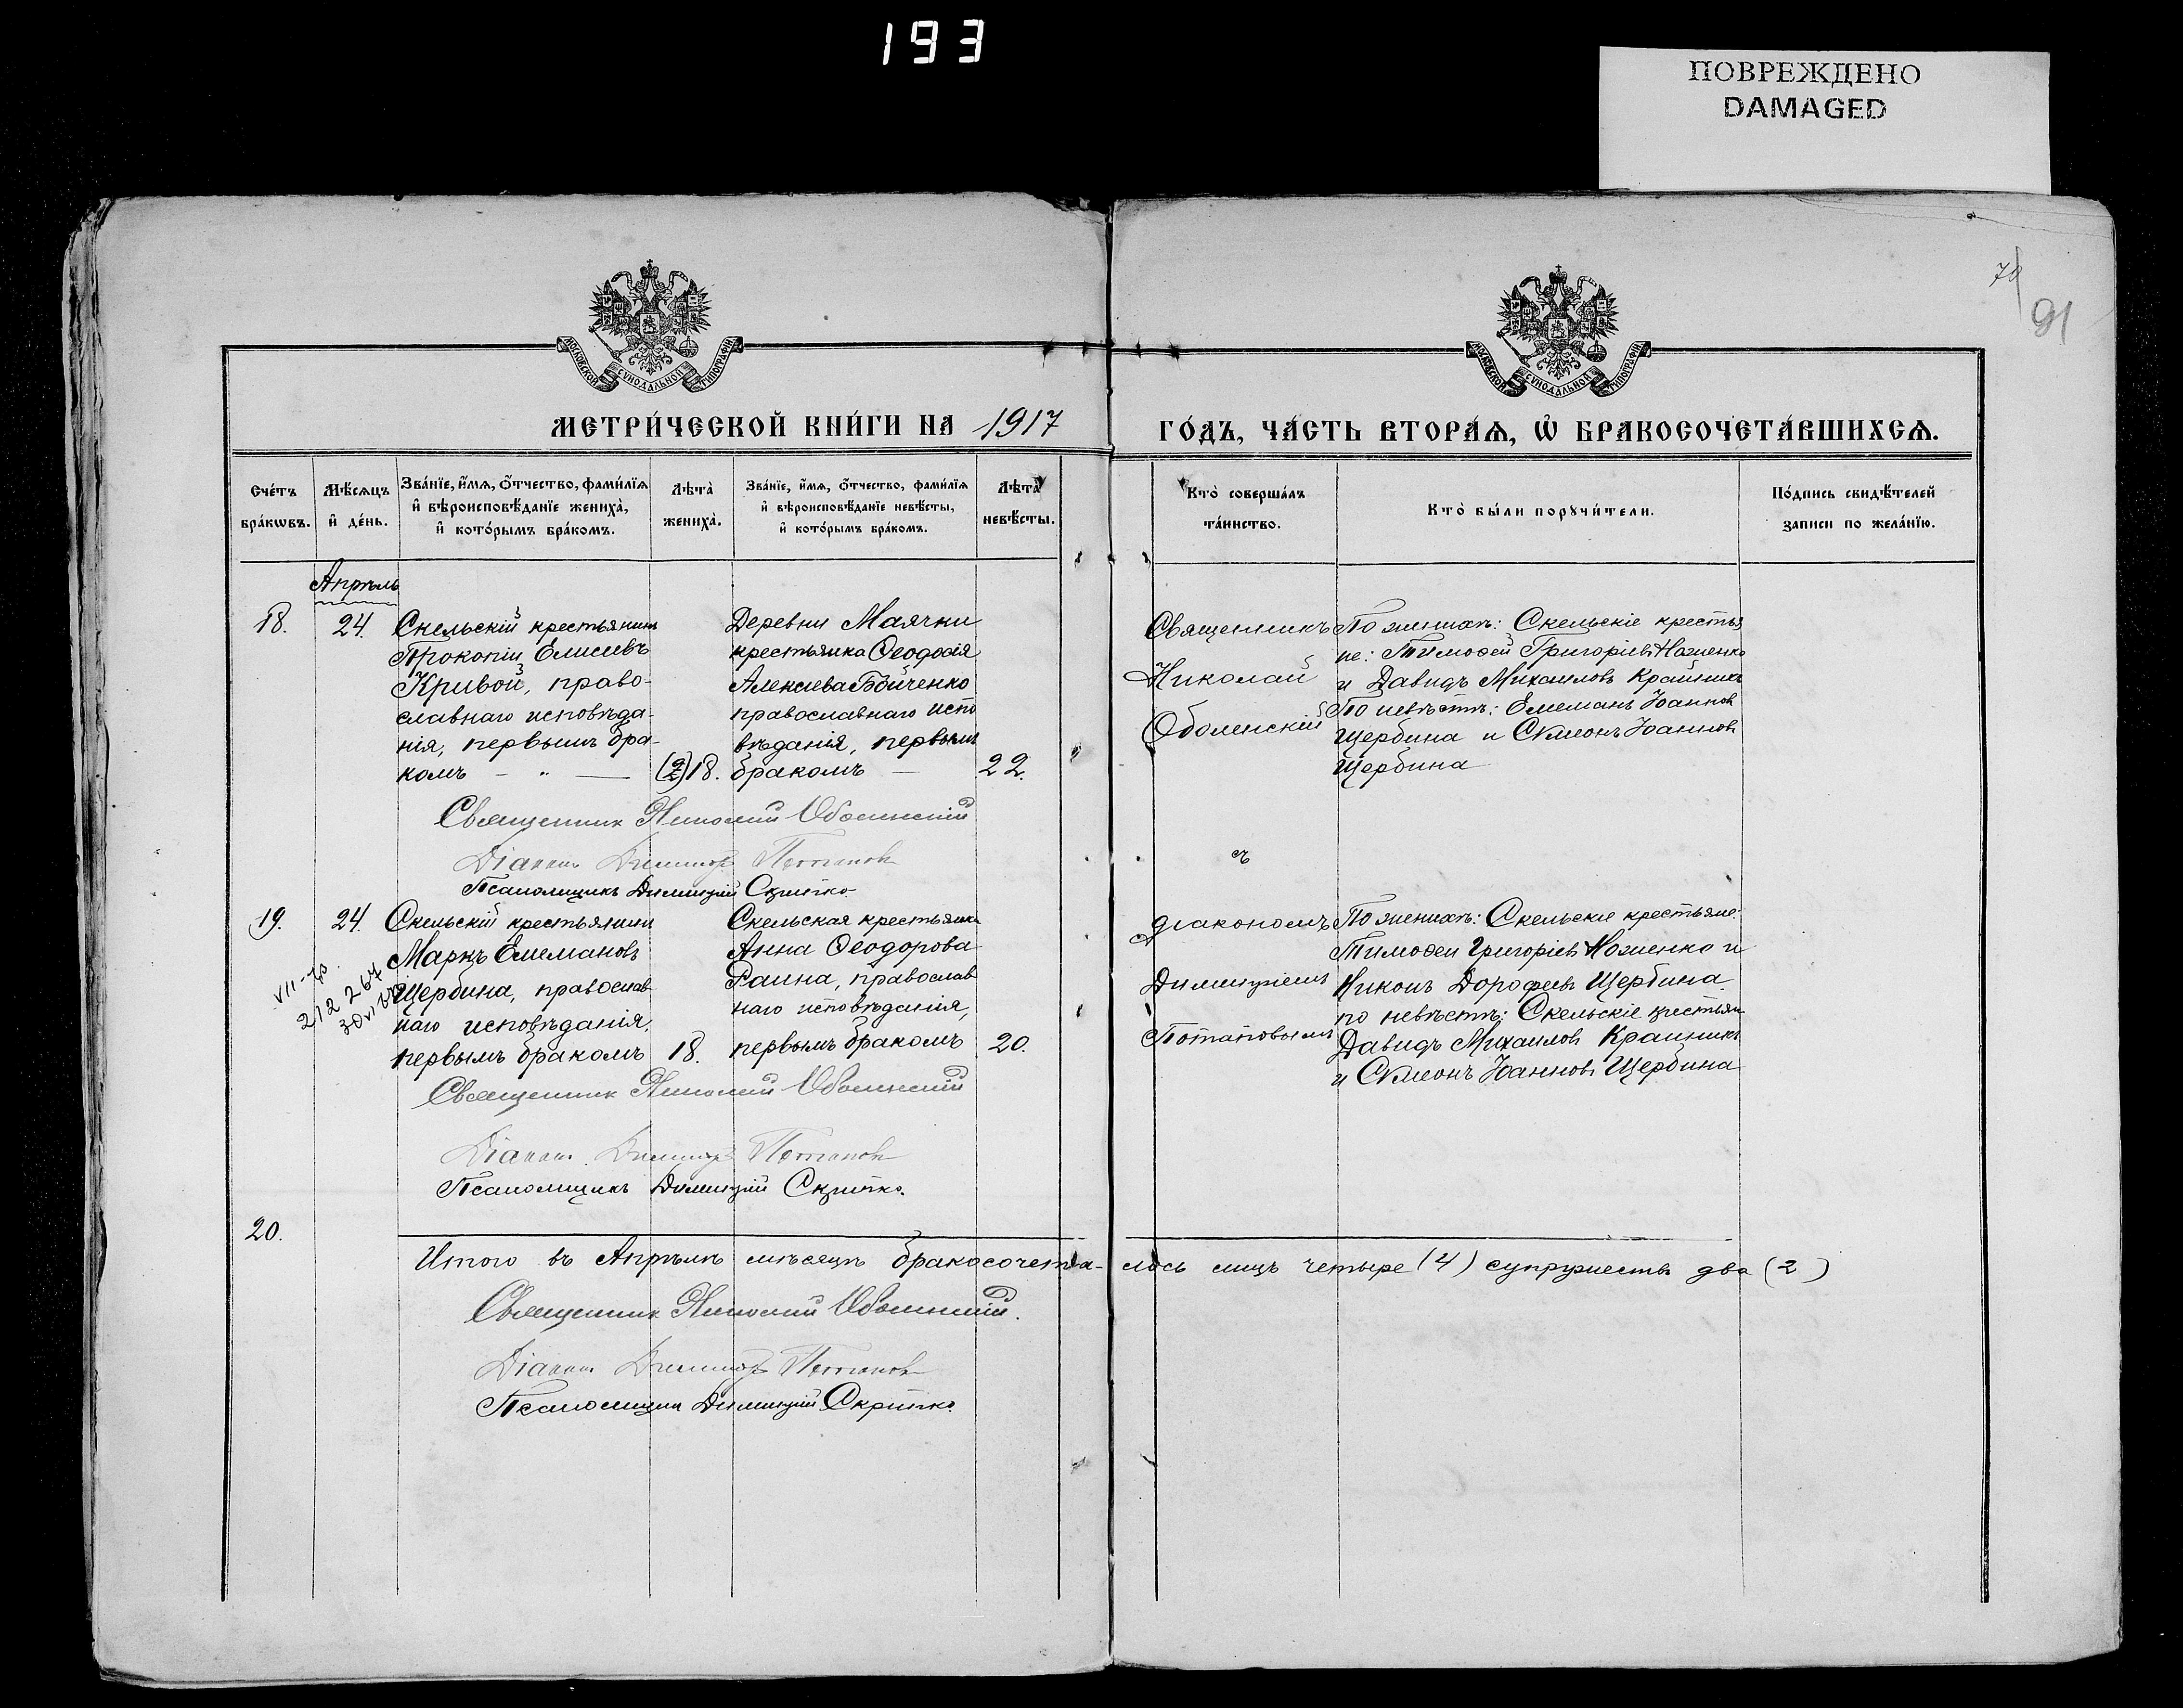 193
ПОВРЕЖДЕНО
DAMAGED
70
91
МОСКОВСКОЙ СѴНОДАЛЬНОЙ ТИПОГРАФІИ
МОСКОВСКОЙ СѴНОДАЛЬНОЙ ТИПОГРАФІИ
МЕТРИ́ЧЕСКОЙ КНИ́ГИ НА 1917
ГО́ДЪ, ЧА́СТЬ ВТОРА́Ѧ, Ѡ҆ БРАКОСОЧЕТА́ВШИХСѦ.
Сче́тъ бра́кѡвъ.
Мѣ́сѧцъ и҆ де́нь.
Зва́нїе, и҆́мѧ, ѻ҆́тчество, фами́лїѧ и҆ вѣроисповѣ́данїе жениха̀, и҆ кото́рымъ бра́комъ.
Лѣта̀ жениха̀.
Зва́нїе, и҆́мѧ, ѻ҆́тчество, фами́лїѧ и҆ вѣроисповѣ́данїе невѣ́сты, и҆ кото́рымъ бра́комъ.
Лѣта̀ невѣ́сты.
Кто̀ соверша́лъ та́инство.
Кто̀ бы́ли порꙋчи́тели.
По́дпись свидѣ́телей записи по жела́нїю.
Апрѣль
18.
24.
Скельскій крестьянинъ
Прокопій Елисеевъ
Кривой, право-
славнаго исповѣда-
нія, первымъ бра-
комъ — " —
18.
Деревни Маячки
крестьянка Ѳеодосія
Алексіева Бойченко
православнаго испо
вѣданія, первымъ
бракомъ —
22.
Священникъ
Николай
Оболенскій
По женихѣ: Скельскіе крестья
не: Тимоѳей Григоріевъ Ноженко
и Давидъ Михаиловъ Крайникъ
По невѣстѣ: Емеліанъ Іоанновъ
Щербина и Сѵмеонъ Іоанновъ
Щербина
Священникъ Николай Оболенскій
Діаконъ Димитрій Потаповъ
Псаломщикъ Димитрій Скрипко.
съ
19.
24.
Скельскій крестьянинъ
Маркъ Емеліановъ
Щербина, православ
наго исповѣданія,
первымъ бракомъ
18.
Скельская крестьянка
Анна Ѳеодорова
Раина, православ
наго исповѣданія,
первымъ бракомъ
20.
діакономъ
Димитріемъ
Потаповымъ
По женихѣ: Скельскіе крестьяне:
Тимоѳей Григоріевъ Ноженко и
Никонъ Дороѳеевъ Щербина
по невѣстѣ: Скельскіе крестьяне
Давидъ Михаиловъ Крайникъ
и Сѵмеонъ Іоанновъ Щербина
212267
Священникъ Николай Оболенскій
Діаконъ Димитрій Потаповъ
Псаломщикъ Димитрій Скрипко.
20.
Итого въ Апрѣлѣ мѣсяцѣ бракосочета-лось лицъ четыре (4) супружествъ два (2)
Священникъ Николай Оболенскій.
Діаконъ Димитрій Потаповъ
Псаломщикъ Димитрій Скрипко.